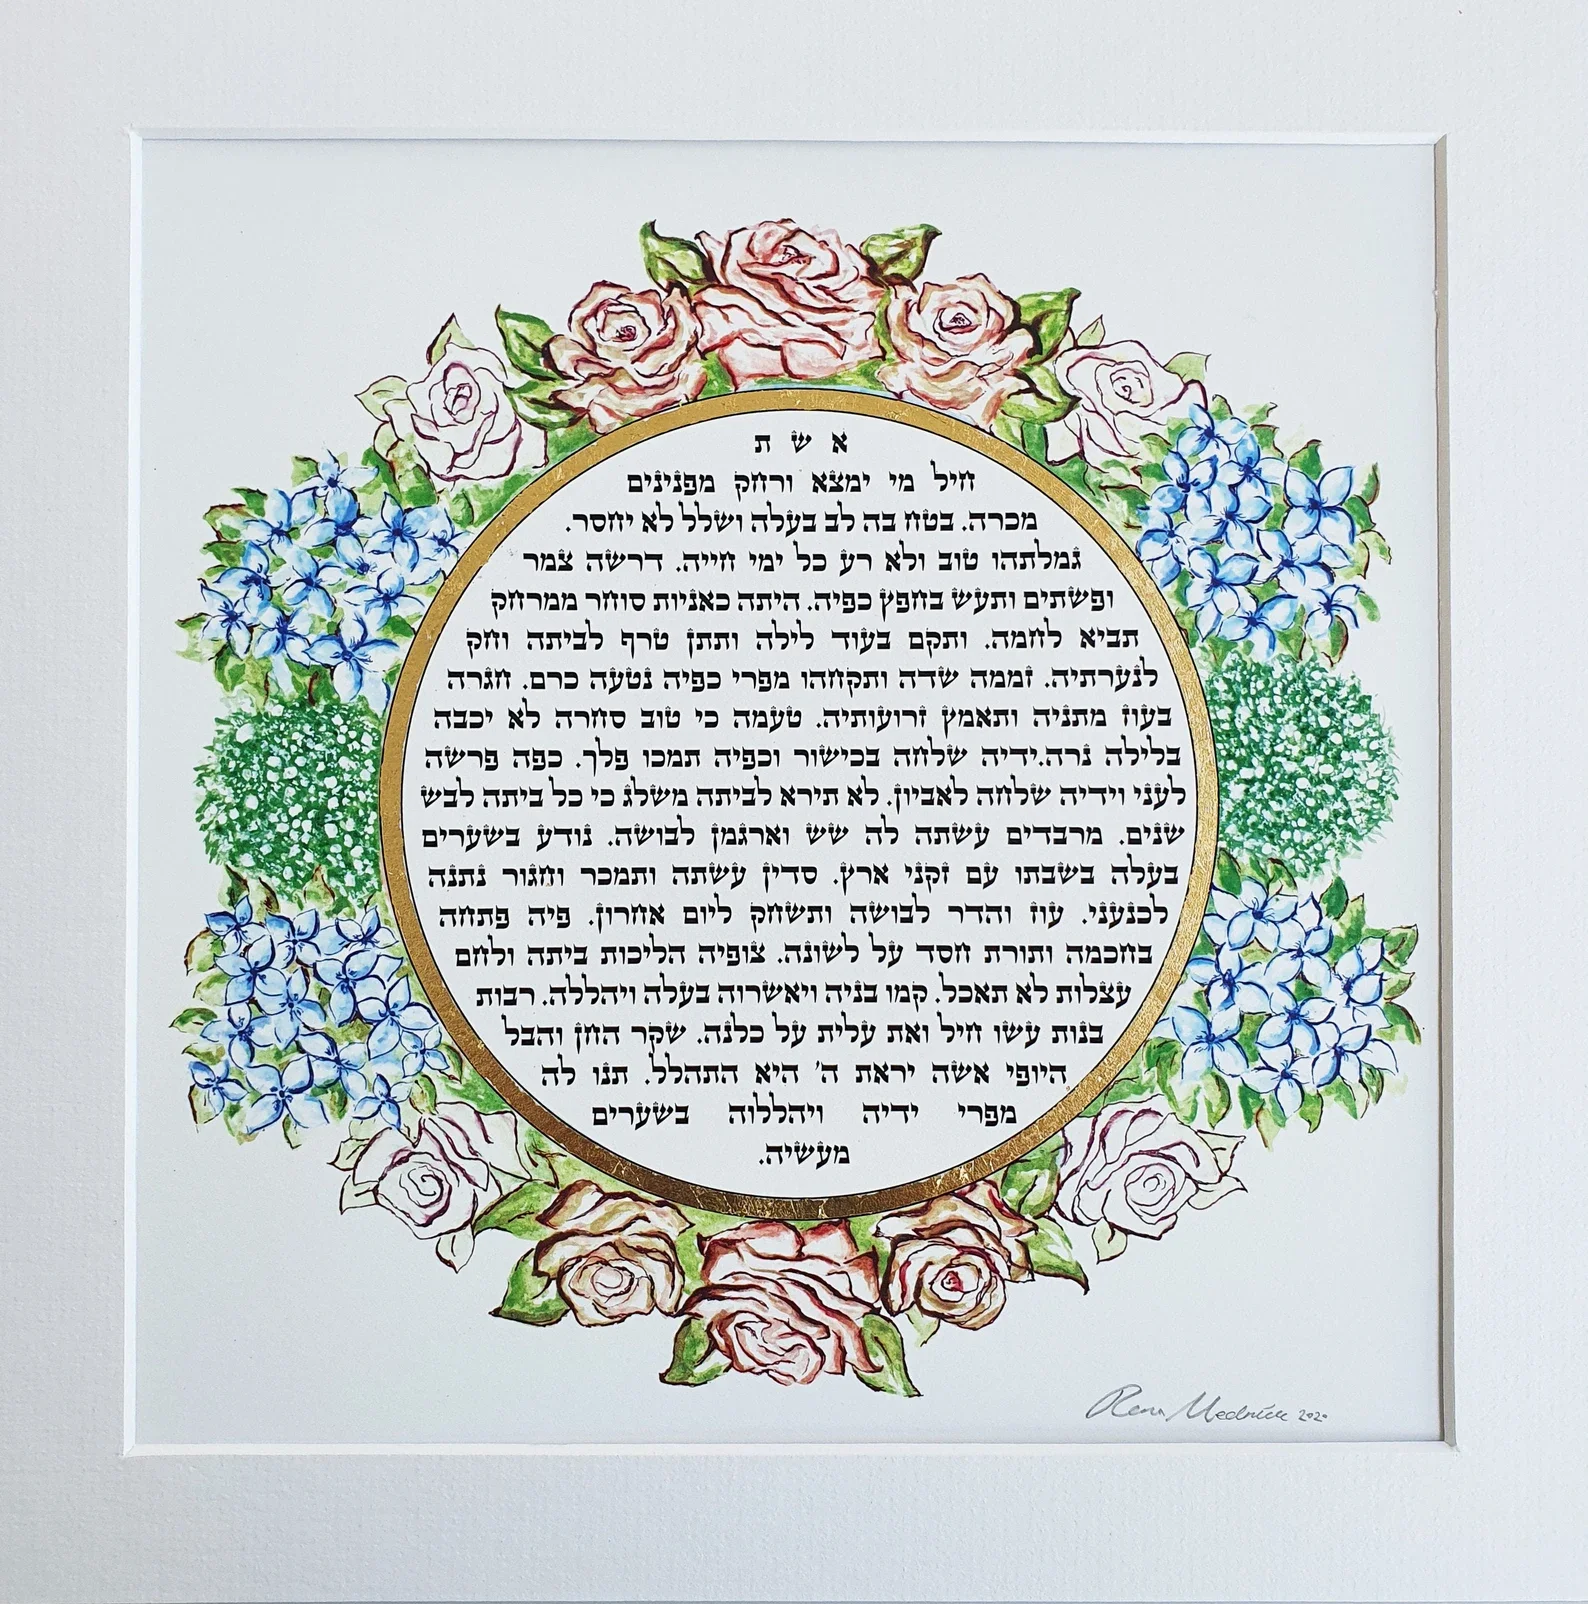 א ש ת
חיל מי ימצא ורחק מפנינים
מכרה. בטח בה לב בעלה ושלל לא יחסר.
גמלתהו טוב ולא רע כל ימי חייה. דרשה צמר
ופשתים ותעש בחפץ כפיה. היתה כאניות סוחר ממרחק
תביא לחמה. ותקם בעוד לילה ותתן טרף לביתה וחק
לנערתיה. זממה שדה ותקחהו מפרי כפיה נטעה כרם. חגרה
בעוז מתניה ותאמץ זרועותיה. טעמה כי טוב סחרה לא יכבה
בלילה נרה.ידיה שלחה בכישור וכפיה תמכו פלך. כפה פרשה
לעני וידיה שלחה לאביון. לא תירא לביתה משלג כי כל ביתה לבש
שנים. מרבדים עשתה לה שש וארגמן לבושה. נודע בשערים
בעלה בשבתו עם זקני ארץ. סדין עשתה ותמכר וחגור נתנה
לכנעני. עוז והדר לבושה ותשחק ליום אחרון. פיה פתחה
בחכמה ותורת חסד על לשונה. צופיה הליכות ביתה ולחם
עצלות לא תאכל. קמו בניה ויאשרוה בעלה ויהללה. רבות
בנות עשו חיל ואת עלית על כלנה. שקר החן והבל
היופי אשה יראת ה' היא התהלל. תנו לה
מפרי ידיה ויהללוה בשערים
מעשיה.
Rena Mednick 2020